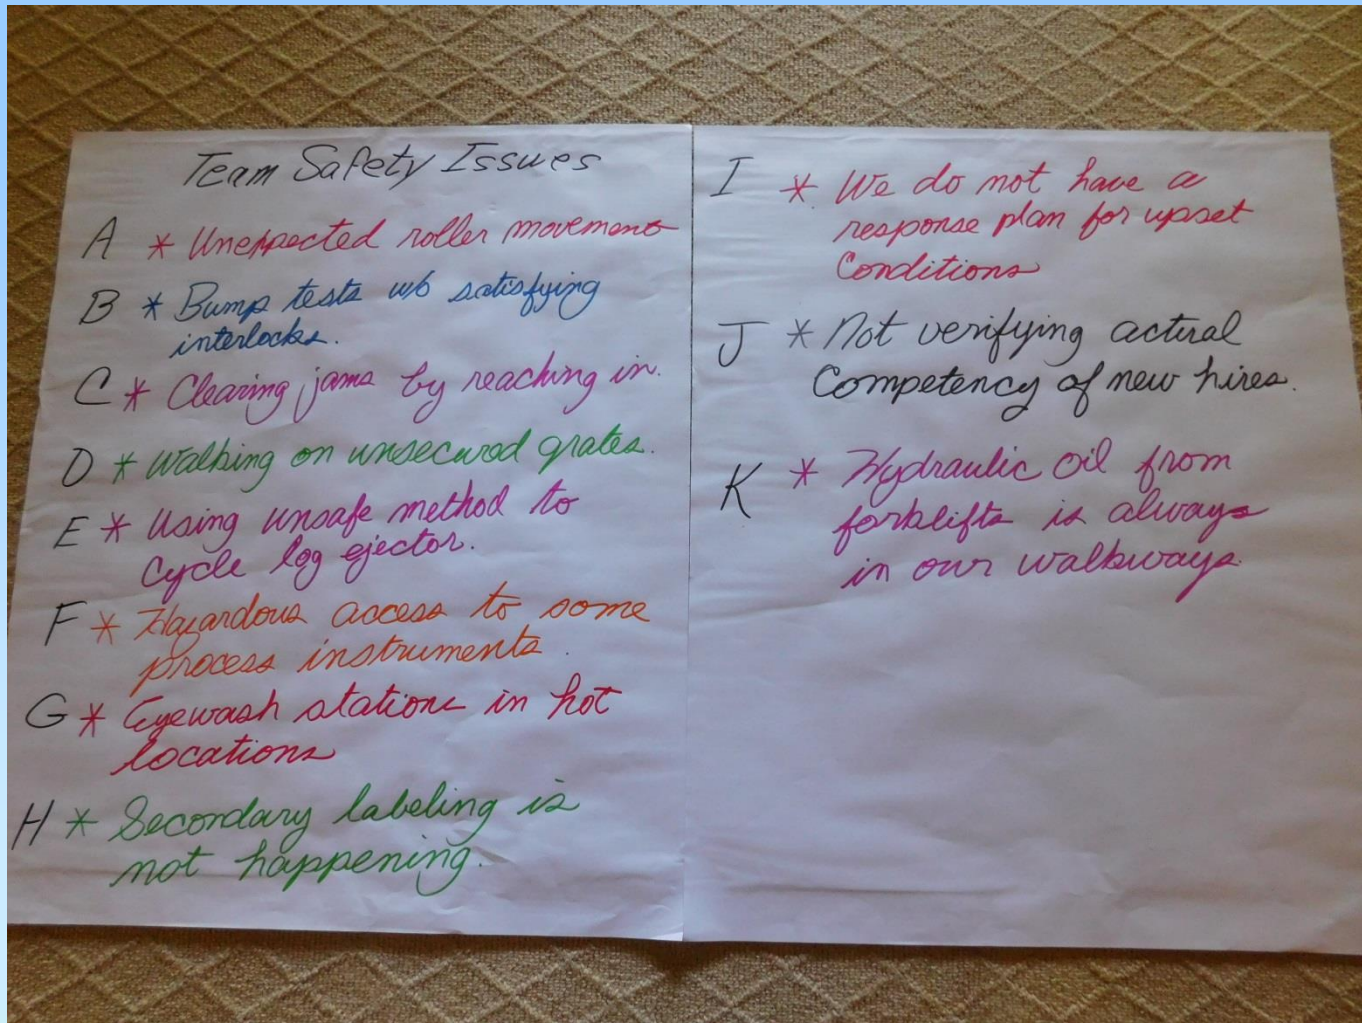 Team Safety Issues
A * Unexpected roller movement
B * Bump tests w/o satisfying
interlocks.
C * Clearing jams by reaching in.
D * Walking on unsecured grates.
E * Using unsafe method to
cycle log ejector.
F * Hazardous access to some
process instruments.
G * Eyewash stations in hot
locations
H * Secondary labeling is
not happening.
I * We do not have a
response plan for upset
Conditions
J * Not verifying actual
Competency of new hires.
K * Hydraulic Oil from
forklifts is always
in our walkways.